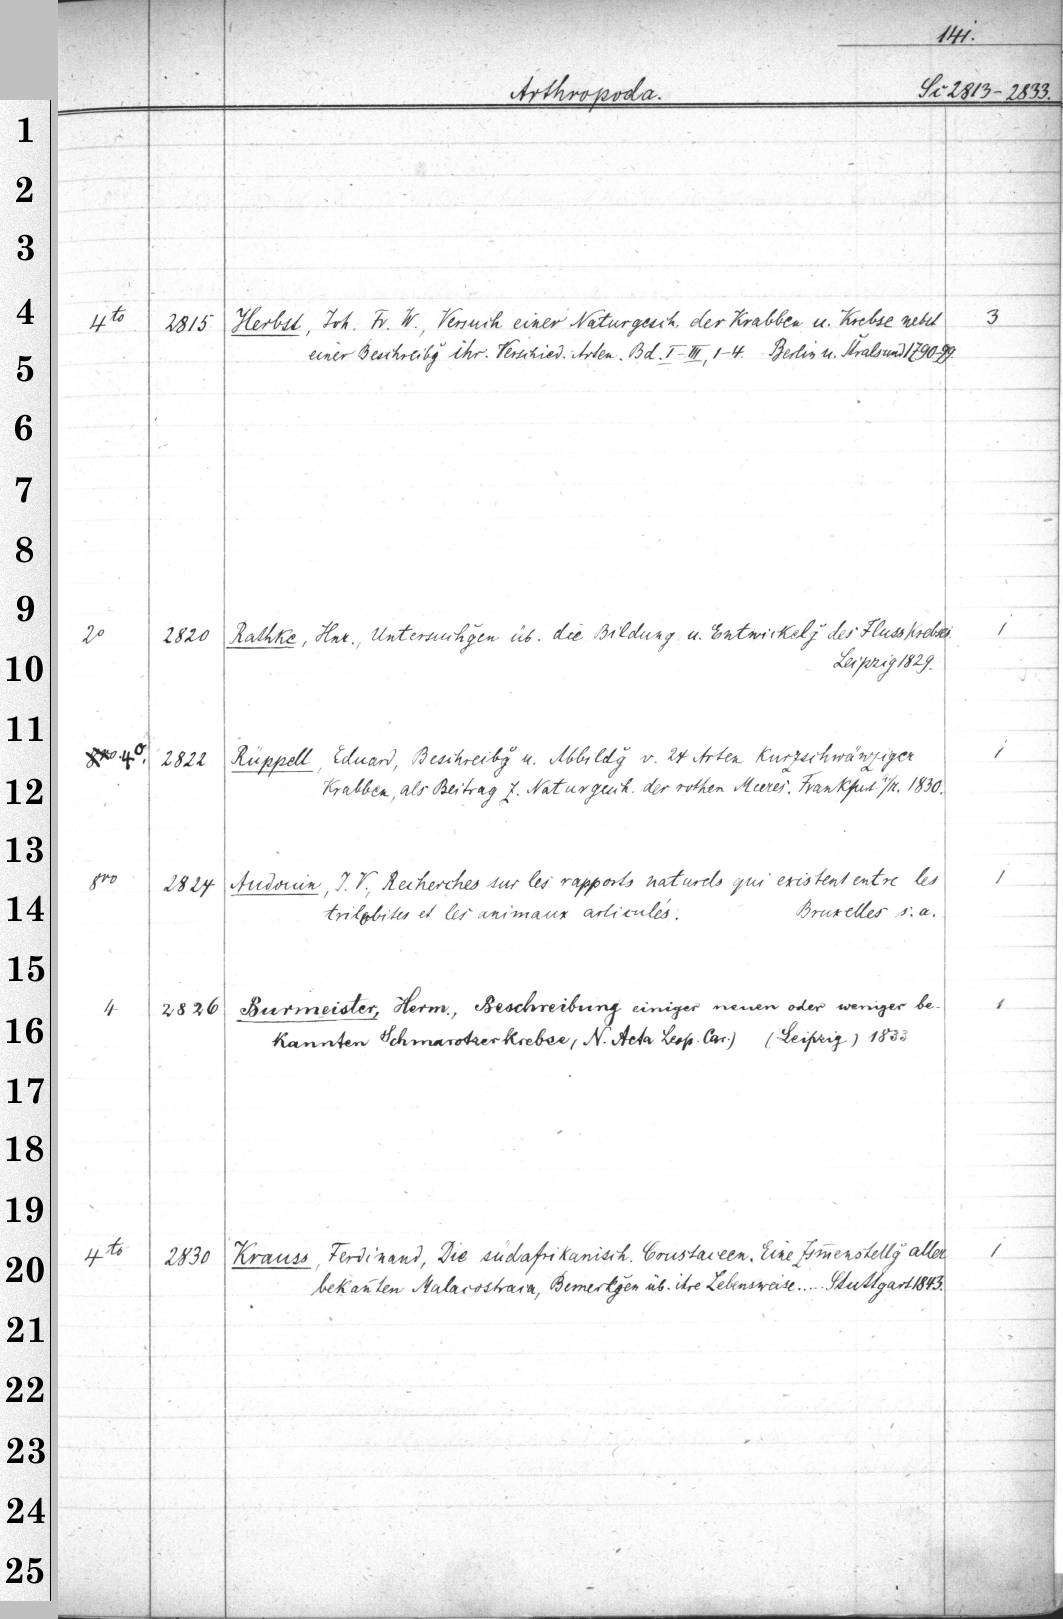 141.
Arthropoda. Si 2813-2833.
1
2
3
4
4to 2815 Herbst, Joh. Fr. W., Versuch einer Naturgesch. der Krabben u. Krebse nebst 3
einer Beschreibg̃ ihr. Verschied. Arten. Bd. I-III, 1-4. Berlin u. Stralsund 1790-99.
5
6
7
8
9
2o 2820 Rathke, Hnr., Untersuchg̃en üb. die Bildung u. Entwickelg̃ des Flusskrebses. 1
10
Leipzig 1829.
11
8vo 4o. 2822 Rüppell, Eduard, Beschreibg̃ u. Abbildg̃ v. 24 Arten kurzschwänziger 1
12
Krabben, als Beitrag z. Naturgesch. der rothen Meeres. Frankfurt a/M. 1830.
13
8vo 2824 Audouin, J. V., Recherches sur les rapports naturels qui existent entre les 1
14
trilobites et les animaux articulés. Bruxelles s. a.
15
4 2826 Burmeister, Herm., Beschreibung einiger neuen oder weniger be- 1
16
kannten Schmarotzerkrebse, (N. Acta Leop. Car.) (Leipzig) 1833
17
18
19
4to 2830 Krauss, Ferdinand, Die südafrikanisch. Crustaceen. Eine Zsm̅enstellg̃ aller 1
20
bekan̅ten Malacostraca, Bemerkg̃en üb. ihre Lebensweise..... Stuttgart 1843.
21
22
23
24
25